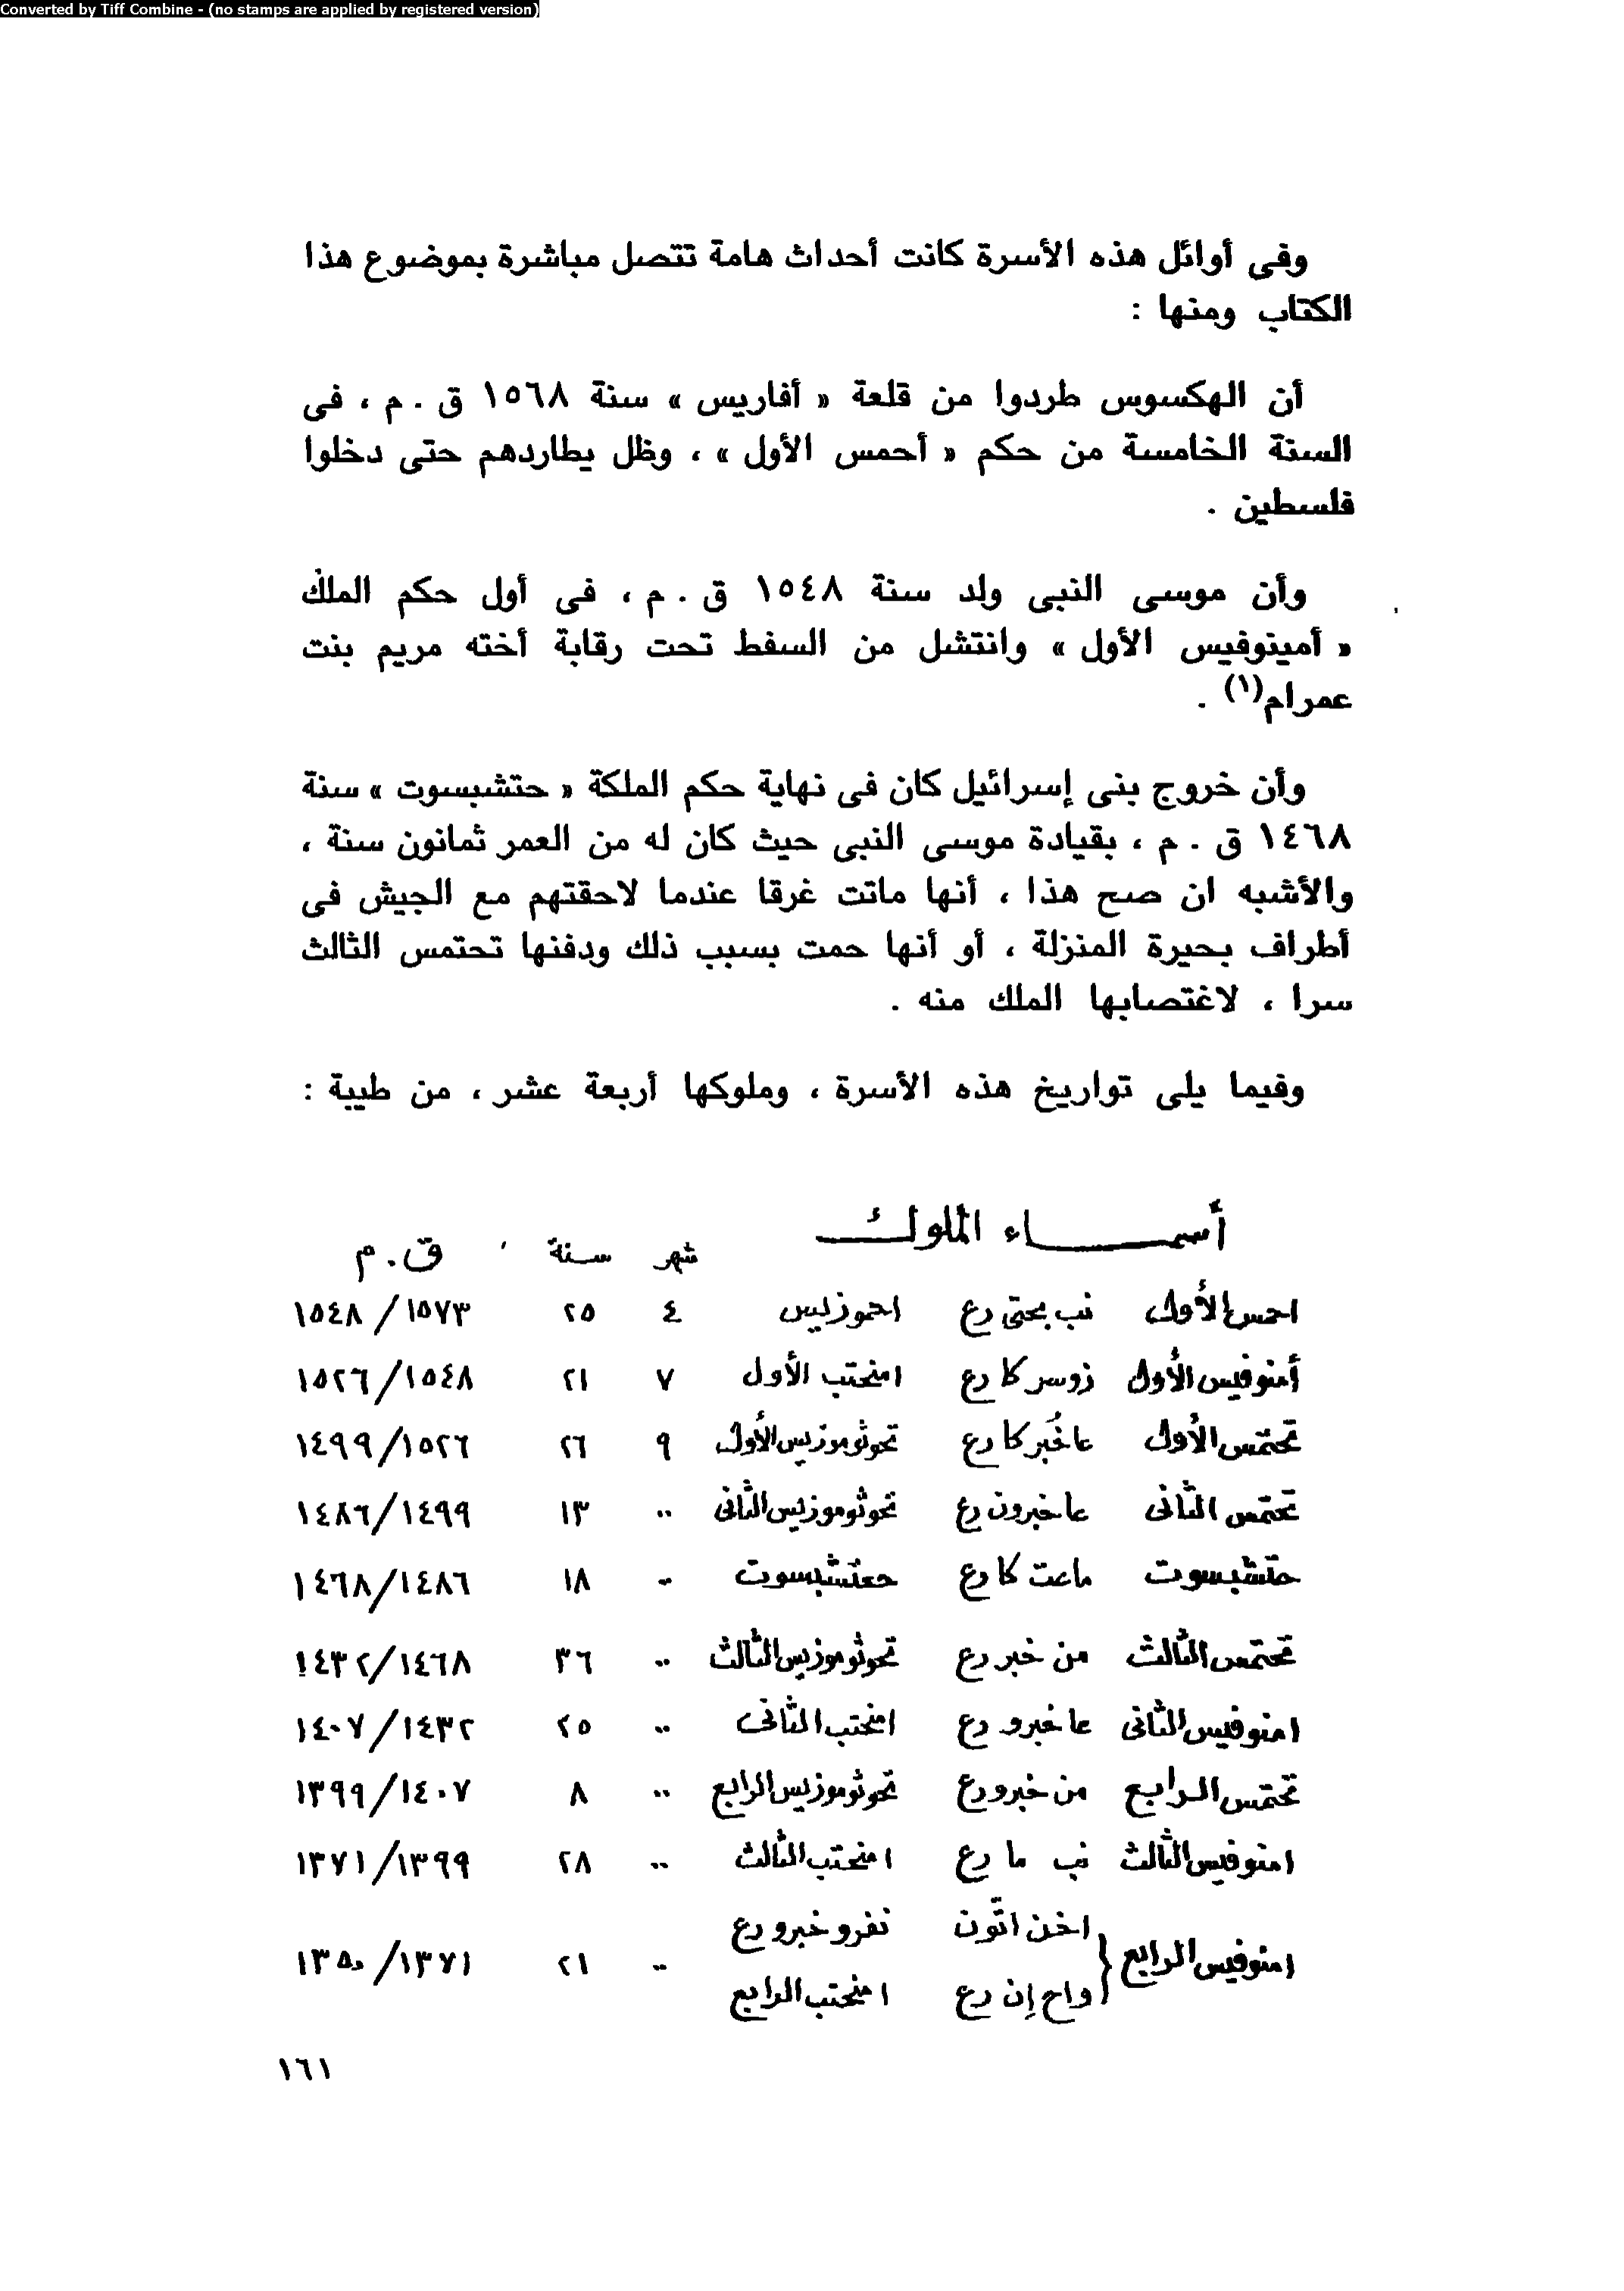 Converted by Tiff Combine - (no stamps are applied by registered version)
وفى أوائل هذه الأسرة كانت أحداث هامة تتصل مباشرة بموضوع هذا
الكتاب ومنها :
أن الهكسوس طردوا من قلعة « أفاريس » سنة ١٥٦٨ ق . م ، فى
السنة الخامسة من حكم « أحمس الأول » ، وظل يطاردهم حتى دخلوا
فلسطين .
وأن موسى النبى ولد سنة ١٥٤٨ ق . م ، فى أول حكم الملك
« أمينوفيس الأول » وانتشل من السفط تحت رقابة أخته مريم بنت
عمرام(١) .
وأن خروج بنى إسرائيل كان فى نهاية حكم الملكة « حتشبسوت » سنة
١٤٦٨ ق . م ، بقيادة موسى النبى حيث كان له من العمر ثمانون سنة ،
والأشبه ان صح هذا ، أنها ماتت غرقا عندما لاحقتهم مع الجيش فى
أطراف بحيرة المنزلة ، أو أنها حمت بسبب ذلك ودفنها تحتمس الثالث
سرا ، لاغتصابها الملك منه .
وفيما يلى تواريخ هذه الأسرة ، وملوكها أربعة عشر ، من طيبة :
أسماء الملوك شهر سنة ق . م
احمس الأول نب بحتى رع احموزيس ٤ ٢٥ ١٥٤٨/١٥٧٣
أمنوفيس الأول زوسر كا رع امنحتب الأول ٧ ٢١ ١٥٢٦/١٥٤٨
تحتمس الأول عاخبر كا رع تحوثوموزيس الأول ٩ ٢٦ ١٤٩٩/١٥٢٦
تحتمس الثانى عاخبرون رع تحوثوموزيس الثانى .. ١٣ ١٤٨٦/١٤٩٩
حتشبسوت ماعت كا رع حعتشبسوت .. ١٨ ١٤٦٨/١٤٨٦
تحتمس الثالث من خبر رع تحوثوموزيس الثالث .. ٣٦ ١٤٣٢/١٤٦٨
امنوفيس الثانى عاخبرو رع امنحتب الثانى .. ٢٥ ١٤٠٧/١٤٣٢
تحتمس الرابع من خبرو رع تحوثوموزيس الرابع .. ٨ ١٣٩٩/١٤٠٧
امنوفيس الثالث نب ما رع امنحتب الثالث .. ٢٨ ١٣٧١/١٣٩٩
اخن اتون نفرو خبرو رع
امنوفيس الرابع .. ٢١ ١٣٥٠/١٣٧١
واح إن رع امنحتب الرابع
١٦١